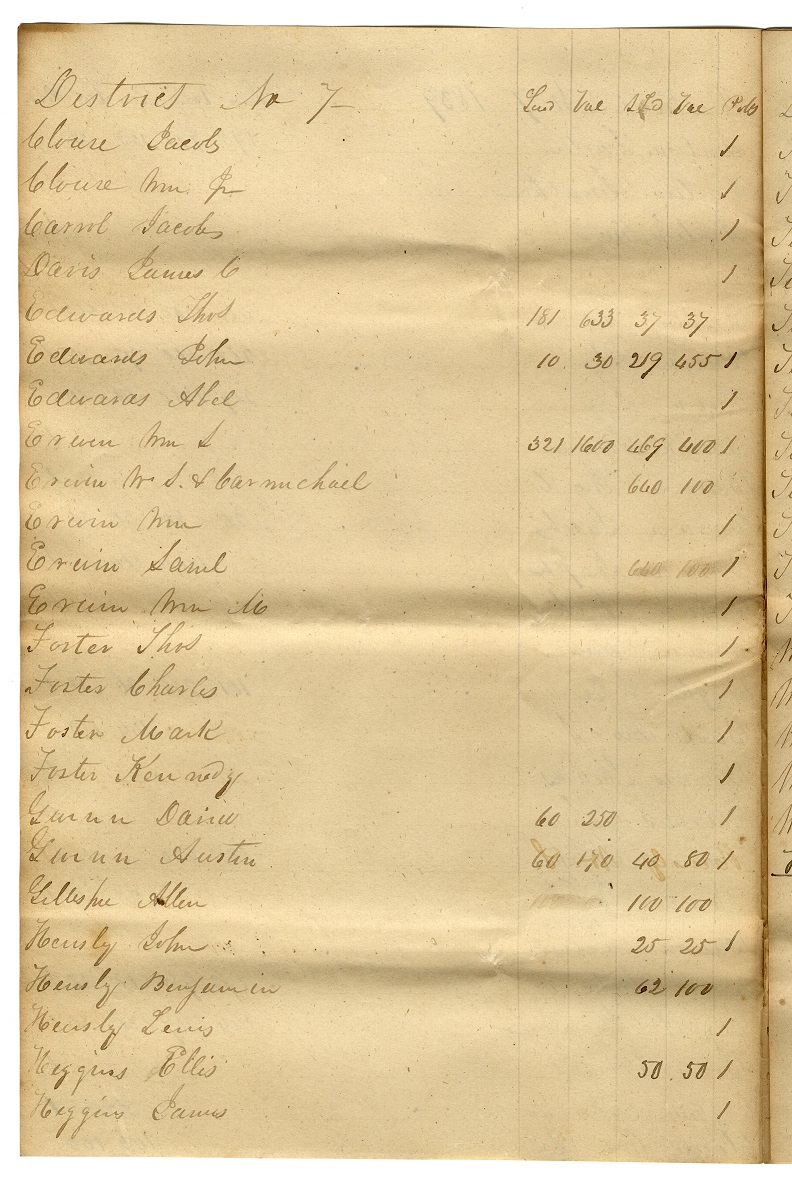 District No 7 Land Val Val Polls
Clouse Jacob 1
Clouse Wm Jr 1
Carrol Jacob 1
Davis James C 1
Edwards Thos 181 633 37 37
Edwards John 10 30 219 455 1
Edwards Abel 1
Erwin Wm S 321 1600 469 400 1
Erwin W. S. & Carmichael 640 100
Erwin Wm 1
Erwin Saml 640 100 1
Erwin Wm M 1
Foster Thos 1
Foster Charles 1
Foster Mark 1
Foster Kennedy 1
Gwinn 60 250 1
Gwinn Austin 60 170 40 80 1
Gillespie Allen 100 100
Hensly John 25 25 1
Hensly Benjamin 62 100
Hensly Lewis 1
Higgins Ellis 50 50 1
Higgins James 1